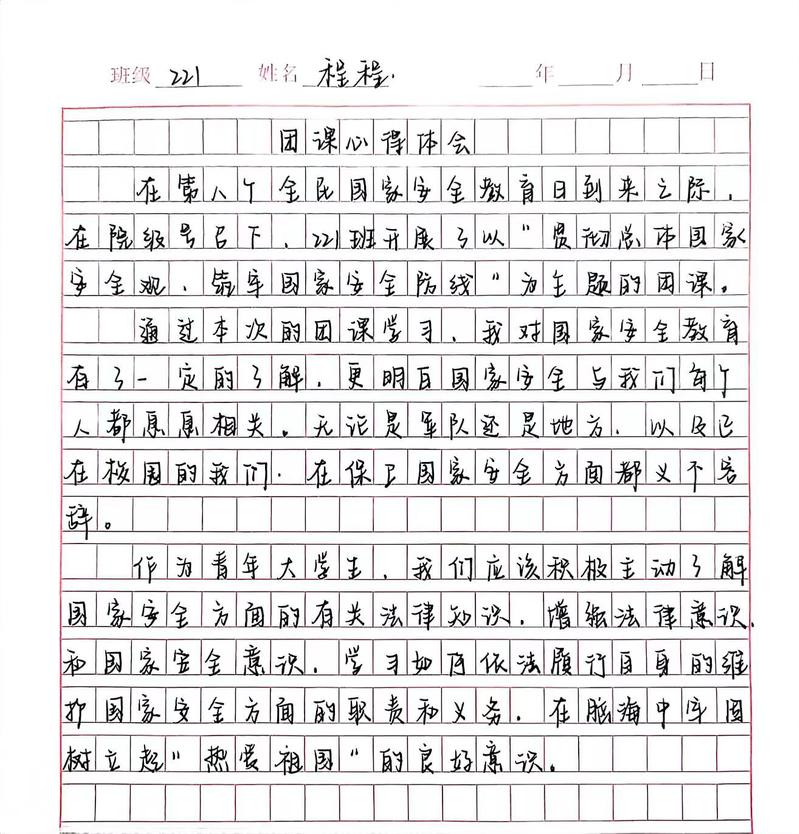 班级 221 姓名 程程. 年 月 日
团课心得体会
在第八个全民国家安全教育日到来之际，
在院级号召下，221班开展了以“贯彻总体国家
安全观，筑牢国家安全防线”为主题的团课。
通过本次的团课学习，我对国家安全教育
有了一定的了解，更明白国家安全与我们每个
人都息息相关。无论是军队还是地方，以及已
在校园的我们，在保卫国家安全方面都义不容
辞。
作为青年大学生，我们应该积极主动了解
国家安全方面的有关法律知识，增强法律意识，
和国家安全意识，学习如何依法履行自身的维
护国家安全方面的职责和义务，在脑海中牢固
树立起“热爱祖国”的良好意识。